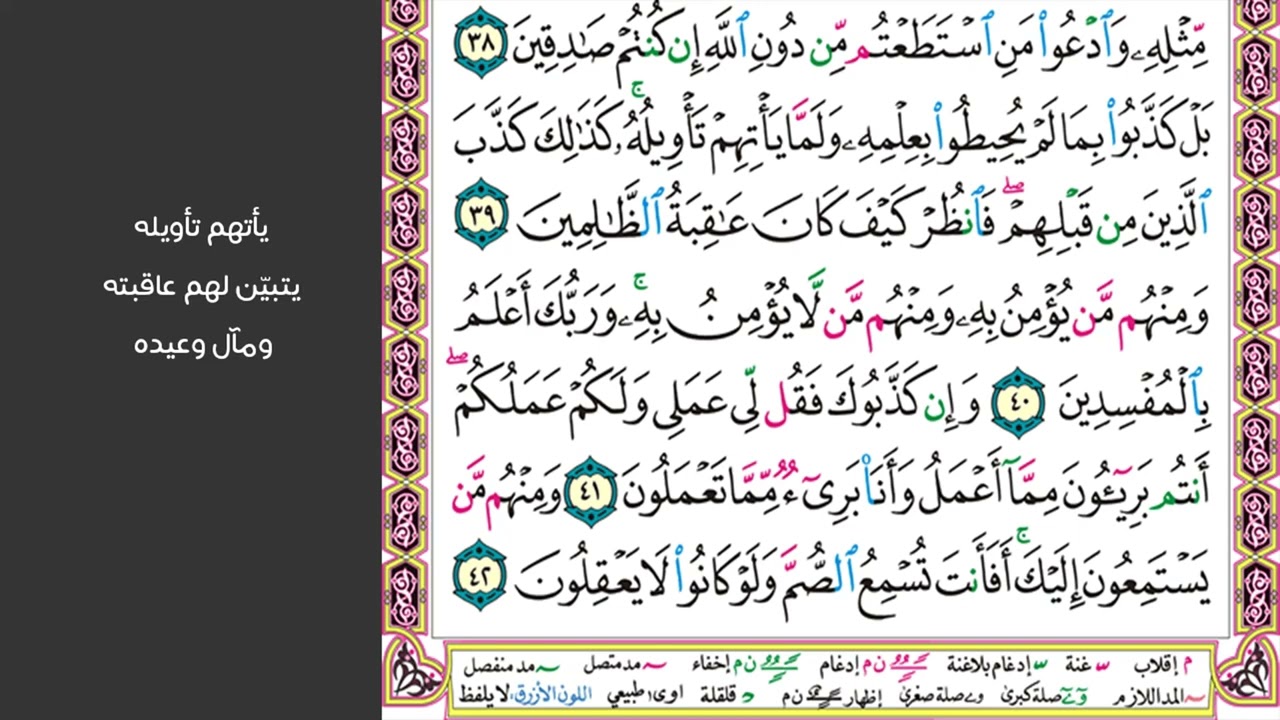 مِّثْلِهِۦ وَٱدْعُوا۟ مَنِ ٱسْتَطَعْتُم مِّن دُونِ ٱللَّهِ إِن كُنتُمْ صَٰدِقِينَ ٣٨
بَلْ كَذَّبُوا۟ بِمَا لَمْ يُحِيطُوا۟ بِعِلْمِهِۦ وَلَمَّا يَأْتِهِمْ تَأْوِيلُهُۥ ۚ كَذَٰلِكَ كَذَّبَ
ٱلَّذِينَ مِن قَبْلِهِمْ ۖ فَٱنظُرْ كَيْفَ كَانَ عَٰقِبَةُ ٱلظَّٰلِمِينَ ٣٩
وَمِنْهُم مَّن يُؤْمِنُ بِهِۦ وَمِنْهُم مَّن لَّا يُؤْمِنُ بِهِۦ ۚ وَرَبُّكَ أَعْلَمُ
بِٱلْمُفْسِدِينَ ٤٠ وَإِن كَذَّبُوكَ فَقُل لِّى عَمَلِى وَلَكُمْ عَمَلُكُمْ ۖ
أَنتُم بَرِيٓـُٔونَ مِمَّآ أَعْمَلُ وَأَنَا۠ بَرِىٓءٌ مِّمَّا تَعْمَلُونَ ٤١ وَمِنْهُم مَّن
يَسْتَمِعُونَ إِلَيْكَ ۚ أَفَأَنتَ تُسْمِعُ ٱلصُّمَّ وَلَوْ كَانُوا۟ لَا يَعْقِلُونَ ٤٢
يأتهم تأويله
يتبيّن لهم عاقبته
ومآل وعيده
م إقلاب غنة إدغام بلاغنة ن م إدغام ن م إخفاء مد متصل مد منفصل
المد اللازم صلة كبرى صلة صغرى إظهار ن م قلقلة اوى طبيعي اللون الأزرق لا يلفظ